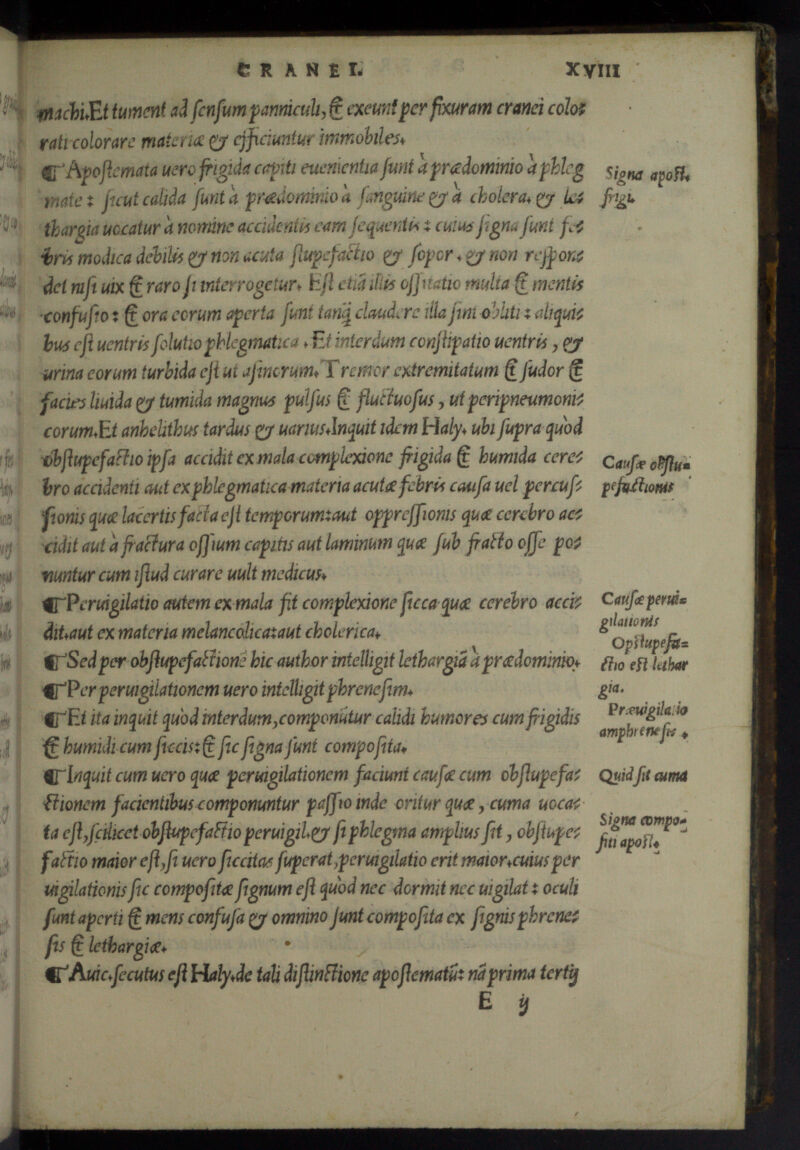 CRANEI. XVIII
machi.Et tument ad sensum panniculi, & exeunt per fixuram cranei colo⸗
rati colorare materiæ & efficiuntur immobiles.
¶ Apostemata uero frigida capiti euenientia sunt à prædominio à phleg
mate: sicut calida sunt à prædominio à sanguine & à cholera. & le⸗
thargia uocatur à nomine accidentis eam sequentis: cuius signa sunt fe⸗
bris modica debilis & non acuta stupefactio & sopor. & non respon⸗
det nisi uix & raro si interrogetur. Est etiã illis oscitatio multa & mentis
confusio: & ora eorum aperta sunt tanq̃ claudere illa sint obliti: aliqui⸗
bus est uentris solutio phlegmatica. Et interdum constipatio uentris, &
urina eorum turbida est ut asinorum. Tremor extremitatum & sudor &
facies liuida & tumida magnus pulsus & fluctuosus, ut peripneumoni⸗
corum.Et anhelitus tardus & uarius.Inquit idem Haly. ubi supra quod
obstupefactio ipsa accidit ex mala complexione frigida & humida cere⸗
bro accidenti aut ex phlegmatica materia acutæ febris causa uel percus⸗
sionis quæ lacertis facta est temporum:aut oppressionis quæ cerebro ac⸗
cidit aut à fractura ossium capitis aut laminum quæ sub fracto osse po⸗
nuntur cum istud curare uult medicus.
¶ Peruigilatio autem ex mala fit complexione sicca quæ cerebro acci⸗
dit.aut ex materia melancolica:aut cholerica.
¶ Sed per obstupefactionẽ hic author intelligit lethargiã à prædominio.
¶ Per peruigilationem uero intelligit phrenesim.
¶ Et ita inquit quòd interdum,componũtur calidi humores cum frigidis
& humidi cum siccis:& sic signa sunt composita.
¶ Inquit cum uero quæ peruigilationem faciunt causæ cum obstupefa⸗
ctionem facientibus componuntur passio inde oritur quæ, cuma uoca⸗
ta est,scilicet obstupefactio peruigil.& si phlegma amplius sit, obstupe⸗
factio maior est,si uero siccitas superat,peruigilatio erit maior.cuius per
uigilationis sic compositæ signum est quòd nec dormit nec uigilat: oculi
sunt aperti & mens confusa & omnino sunt composita ex signis phrene⸗
sis & lethargiæ.
¶ Auic.secutus est Haly.de tali distinctione apostematũ: nã prima tertij
E ij
Signa apost.
frigi.
Causæ obstu⸗
pefactionis
Causæ perui⸗
gilationis
Opstupefa⸗
ctio est lethar
gia.
Præuigilatio
amphrenesis.
Quid sit cuma
Signa compo⸗
siti apost.